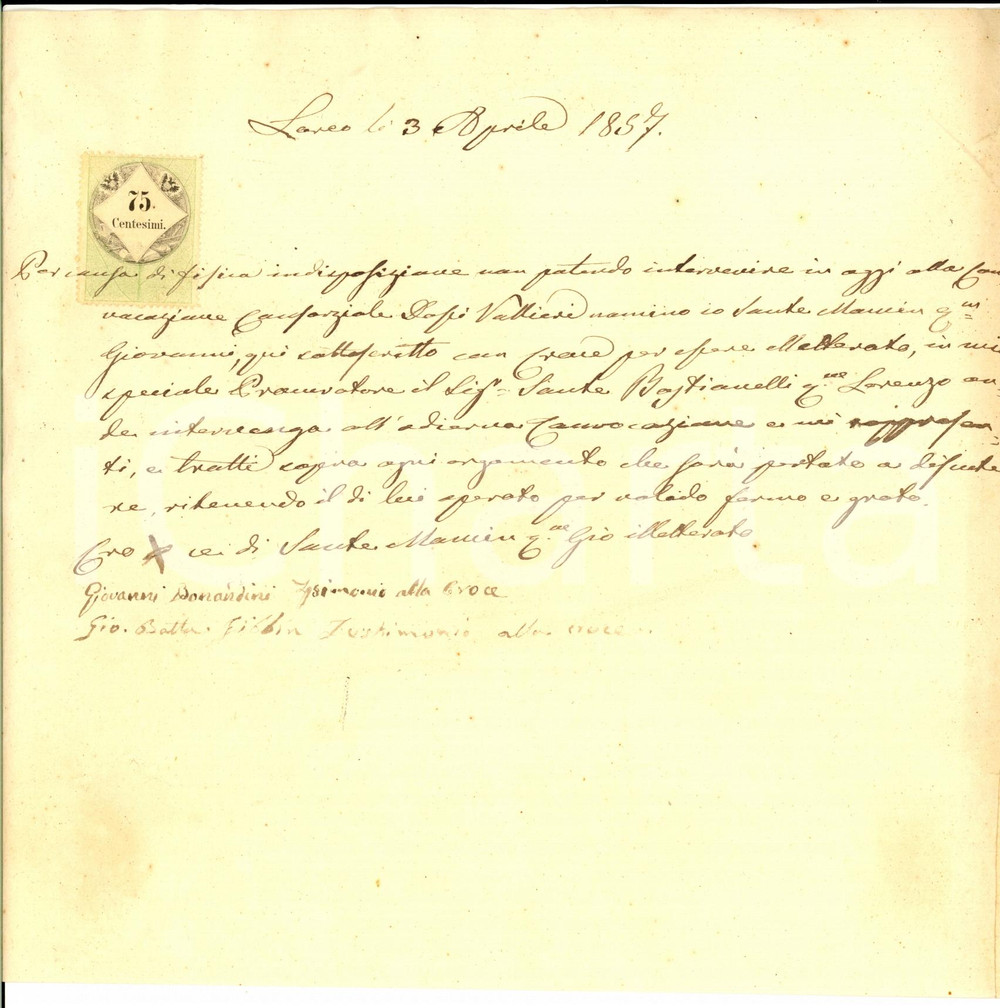 Loreo li 3 Aprile 1857.
75.
Centesimi.
Per causa di fisica indisposizione non potendo intervenire in oggi alla Con
vocazione Consorziale Dossi Vallieri nomino io Sante Mancin q.m
Giovanni, qui sottoscritto con Croce per essere illetterato, in mi
speciale Procuratore il Sig.r Sante Bastianelli q.m Lorenzo on-
de intervenga all'odierna Convocazione e mi rappresen-
ti, e tratti sopra ogni argomento che sarà portato a discute
re, ritenendo il di lui operato per valido fermo e grato.
Cro X ce di Sante Mancin q.m Gio illetterato
Giovanni Bonandini Tesimonio alla Croce
Gio. Batta. Testimonio alla croce.